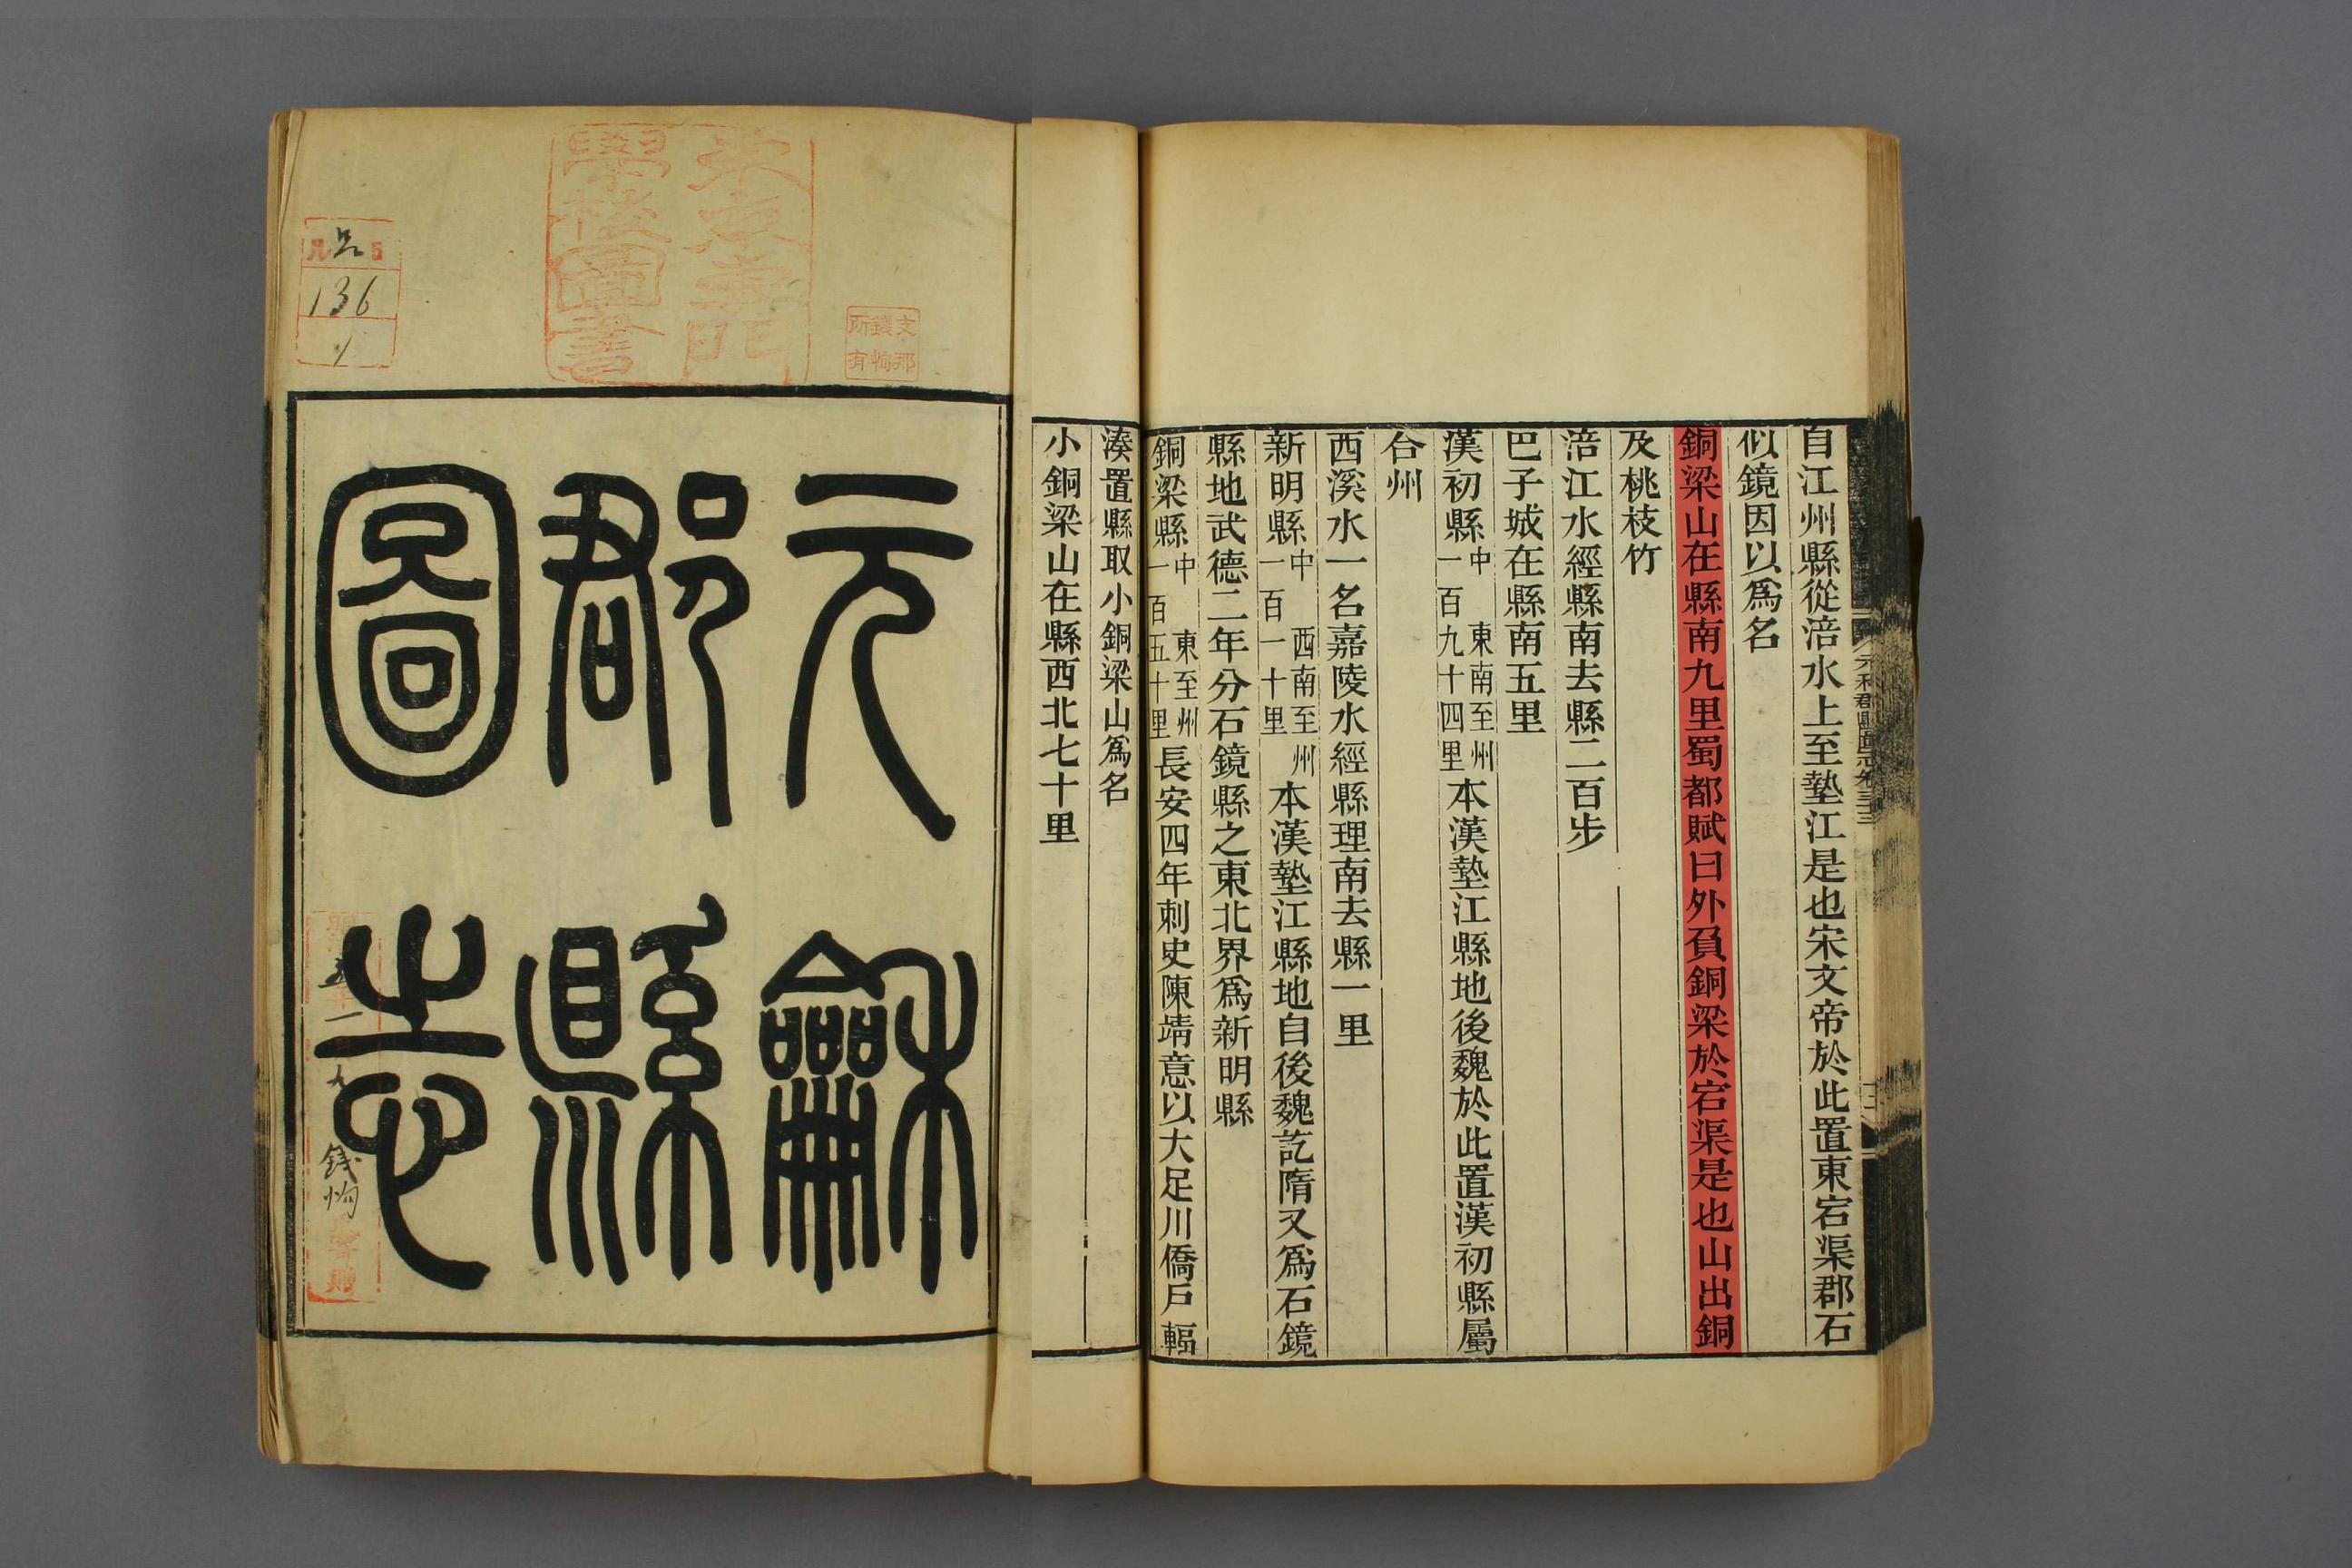 自江州縣從涪水上至墊江是也宋文帝於此置東宕渠郡石
似鏡因以爲名
銅梁山在縣南九里蜀都賦曰外負銅梁於宕渠是也山出銅
及桃枝竹
涪江水經縣南去縣二百步
巴子城在縣南五里
漢初縣中東南至州一百九十四里本漢墊江縣地後魏於此置漢初縣屬
合州
西溪水一名嘉陵水經縣理南去縣一里
新明縣中西南至州一百一十里本漢墊江縣地自後魏訖隋又爲石鏡
縣地武德二年分石鏡縣之東北界爲新明縣
銅梁縣中東至州一百五十里長安四年刺史陳靖意以大足川僑戶輻
湊置縣取小銅梁山爲名
小銅梁山在縣西北七十里
元和郡縣圖志卷三十三
元龢
郡縣
圖志
支那
錢恂
所有
136
錢恂